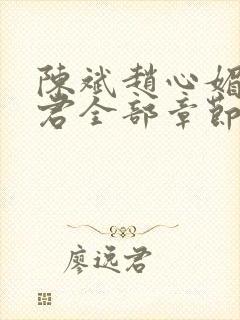 陳斌趙心媚
君全部章節
廖远君